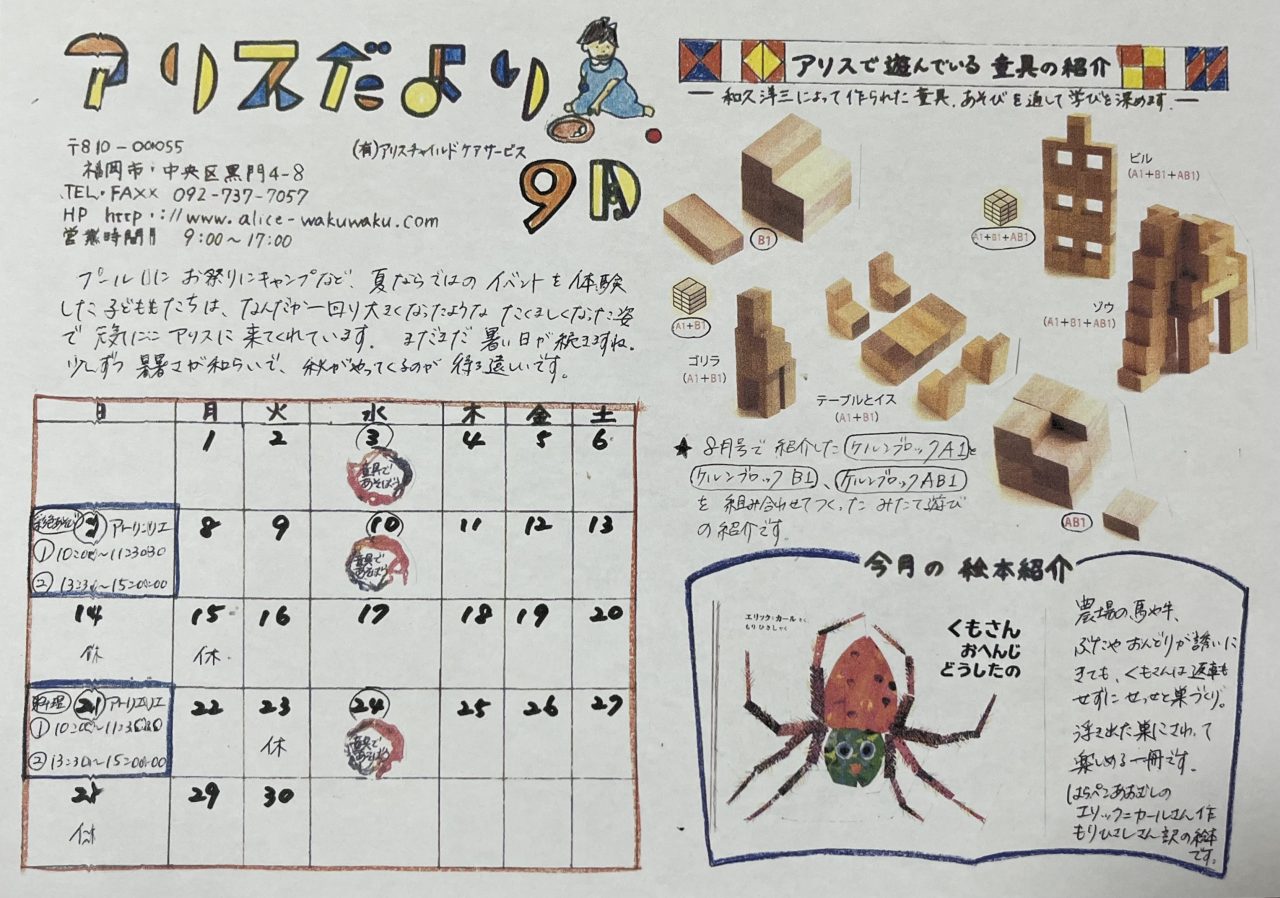 アリスだより
〒810-00055
(有)アリスチャイルドケアサービス
福岡市・中央区黒門4-8
TEL・FAXX 092-737-7057
HP http・://www.alice-wakuwaku.com
営業時間 9:00〜17:00
9月
プール日にお祭りにキャンプなど、夏ならではのイベントを体験
した子どもたちは、なんだか一回り大きくなったような たくましくなった姿
で元気にアリスに来てくれています。まだまだ暑い日が続きますね。
少しずつ暑さが和らいで、秋がやってくるのが待ち遠しいです。
日 月 火 水 木 金 土
1 2 3 4 5 6
童具で
あそぼう
アトリエ
8 9 10 11 12 13
① 10:00〜11:30
② 13:30〜15:00
童具で
あそぼう
14 15 16 17 18 19 20
休 休
料理 21 アトリエ 22 23 24 25 26 27
① 10:00〜11:30
② 13:30〜15:00
休
童具で
あそぼう
29 30
休
アリスで遊んでいる童具の紹介
― 和久洋三によって作られた童具。あそびを通して学びを深めます。―
B1
ビル
(A1+B1+AB1)
A1+B1+AB1
A1+B1
ゴリラ
(A1+B1)
テーブルとイス
(A1+B1)
ゾウ
(A1+B1+AB1)
AB1
★ 8月号で紹介した ケルンブロックA1と
ケルンブロック B1、ケルンブロックAB1
を組み合わせてつくった みたて遊び
の紹介です。
今月の 絵本紹介
エリック=カール さく
もり ひさし やく
くもさん
おへんじ
どうしたの
農場の馬や牛、
ぶたやおんどりが誘いに
きても、くもさんは返事も
せずにせっせと巣づくり。
浮き出た巣にさわって
楽しめる一冊です。
はらぺこあおむしの
エリック=カールさん作
もりひさしさん訳の絵本
です。